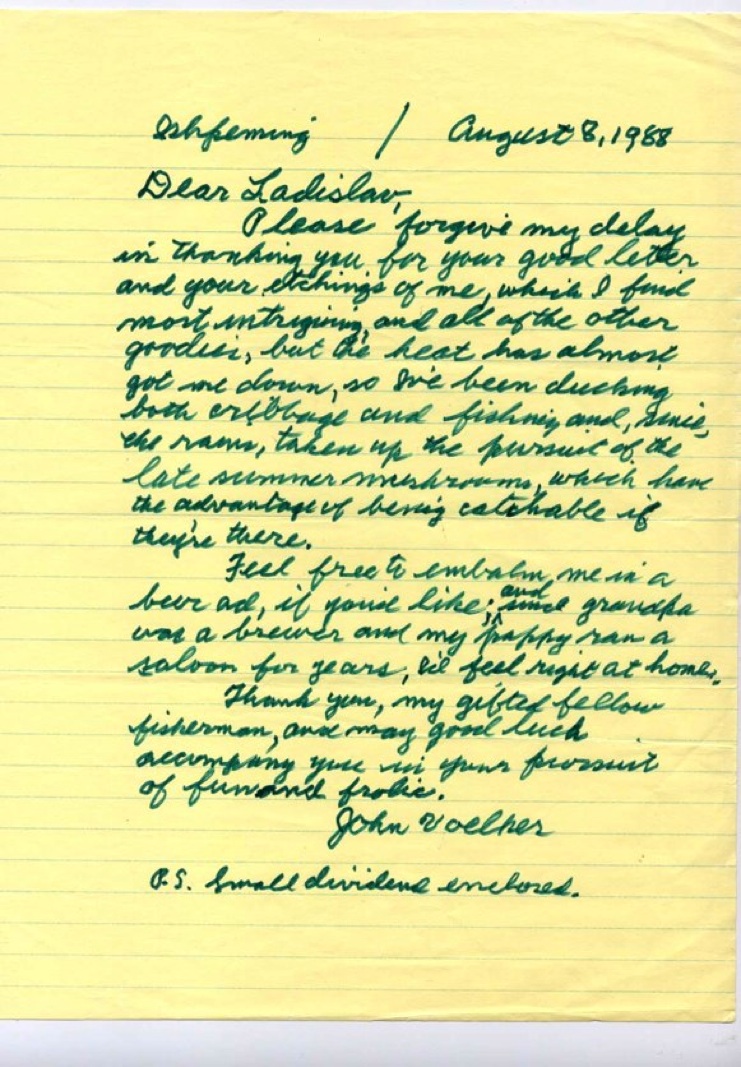 Ishpeming / August 8, 1988
Dear Ladislav,
Please forgive my delay
in thanking you for your good letter
and your etchings of me, which I find
most intriging, and all of the other
goodies, but the heat has almost
got me down, so I've been ducking
both cribbage and fishing and, since,
the rains, taken up the pursuit of the
late summer mushrooms, which have
the advantage of being catchable if
they're there.
Feel free to embalm me in a
beer ad, if you'd like; and since grandpa
was a brewer and my pappy ran a
saloon for years, I'd feel right at home.
Thank you, my gifted fellow
fisherman, and may good luck
accompany you in your pursuit
of fun and frolic.
John Voelker
P.S. Small dividend enclosed.